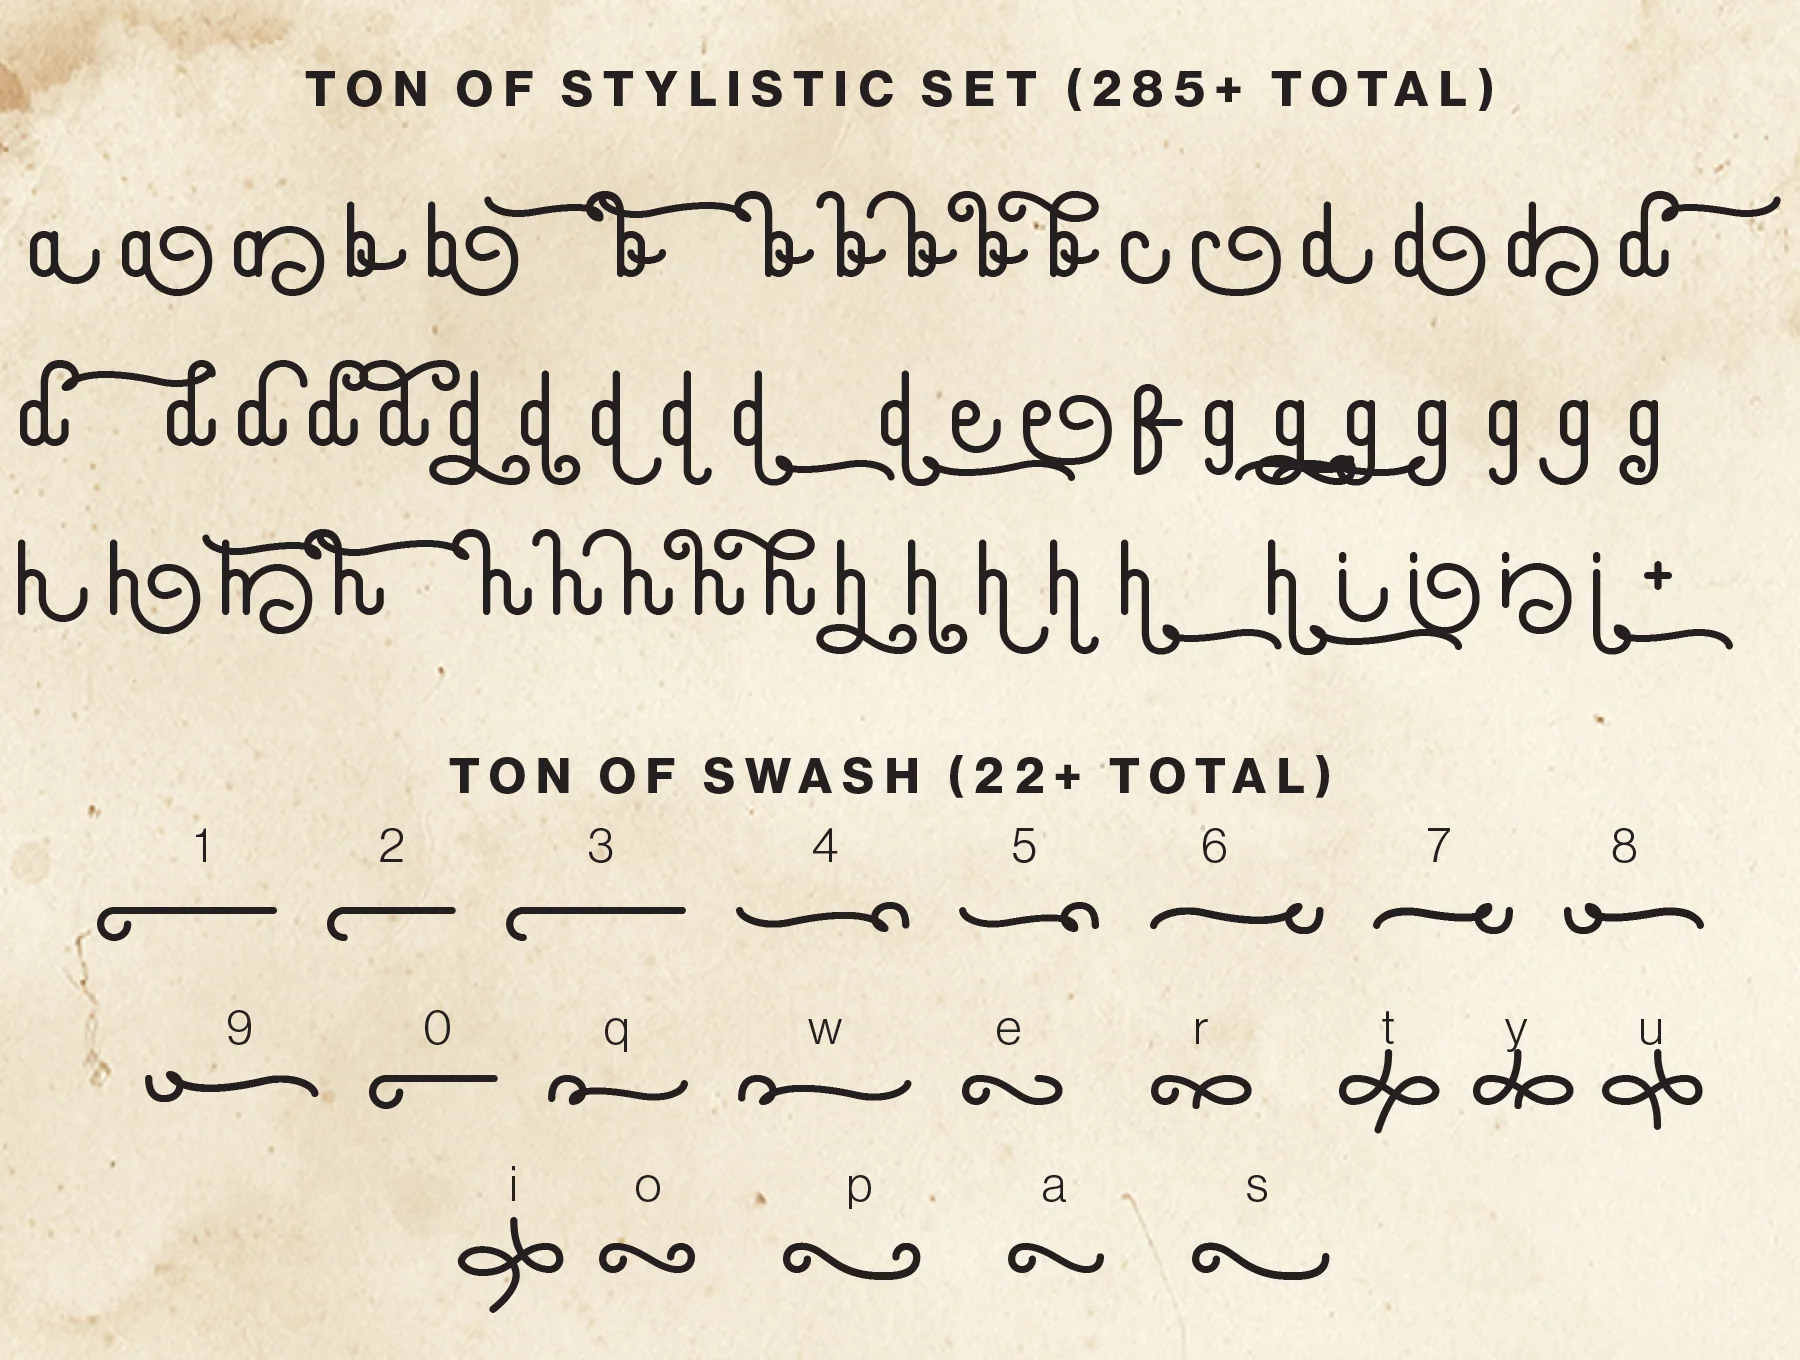 TON OF STYLISTIC SET (285+ TOTAL)
a a a b b b b b b b b c c d d d d
d d d d d d d d d d d e e f g g g g g g g
h h h h h h h h h h h h h h h i i i i +
TON OF SWASH (22+ TOTAL)
1 2 3 4 5 6 7 8
9 0 q w e r t y u
i o p a s